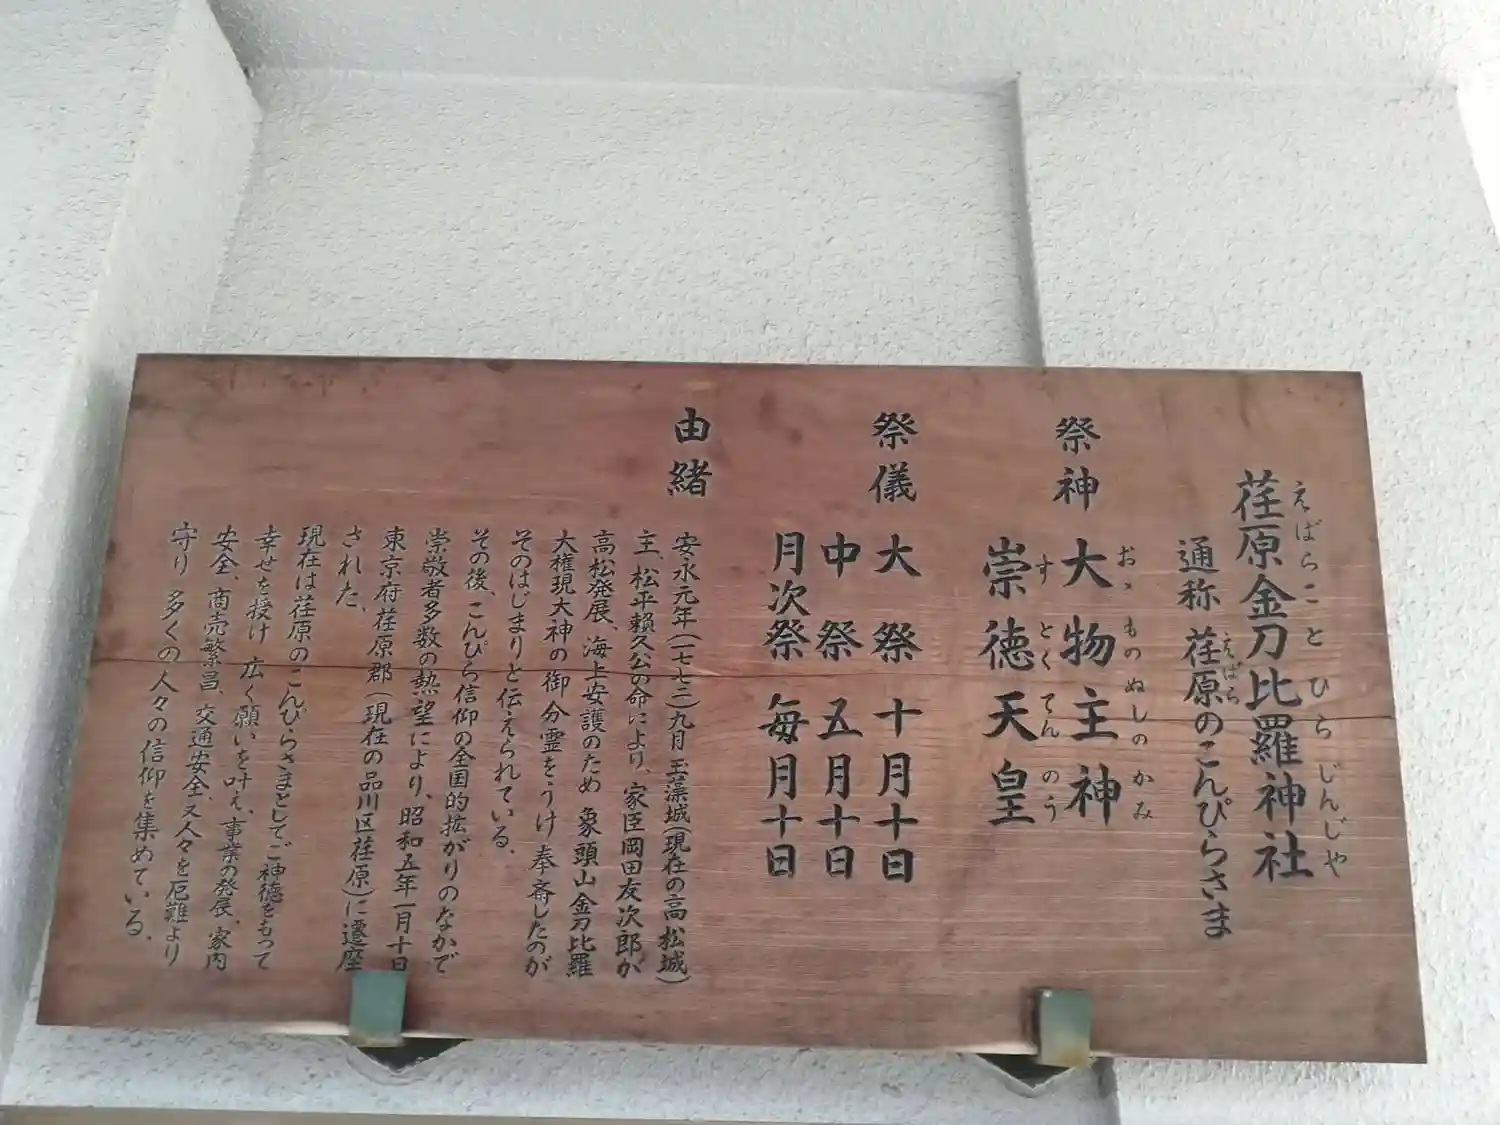 荏原金刀比羅神社
えばらことひらじんじや
通称 荏原のこんぴらさま
えばら
祭神 大物主神
おゝものぬしのかみ
崇徳天皇
すとくてんのう
祭儀 大祭 十月十日
中祭 五月十日
月次祭 毎月十日
由緒
安永元年(一七七二)九月玉藻城(現在の高松城)
主、松平頼久公の命により、家臣岡田友次郎が
高松発展、海上安護のため 象頭山金刀比羅
大権現大神の御分霊をうけ奉斎したのが
そのはじまりと伝えられている.
その後、こんぴら信仰の全国的拡がりのなかで
崇敬者多数の熱望により、昭和五年一月十日
東京府荏原郡(現在の品川区荏原)に遷座
された、
現在は荏原のこんぴらさまとしてご神徳をもって
幸せを授け 広く願いを叶え、事業の発展、家内
安全、商売繁昌、交通安全、又人々を厄難より
守り 多くの人々の信仰を集めている.